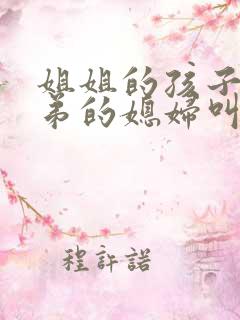 姐姐的孩子
弟的媳婦叫
程許諾